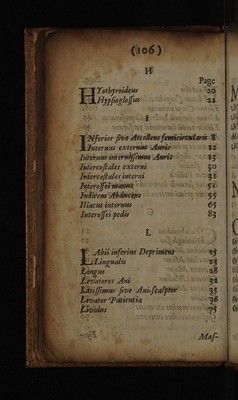 (106)
H
Page
HYothyroideus 20
Hypsiglossus 22
I
INferior sive Attollens semicircularis 8
Internus externus Auris 12
Internus internissimus Auris 13
Intercostales externi 30
Intercostales interni 31
Interossei manus 51
Indicem Abducens 55
Iliacus internus 65
Interossei pedis 83
L
LAbii inferius Deprimens 15
Lingualis 23
Longus 28
Levatores Ani 32
Latissimus sive Ani-scalptor 35
Levator Patientiæ 36
Lividus 75
Mas-